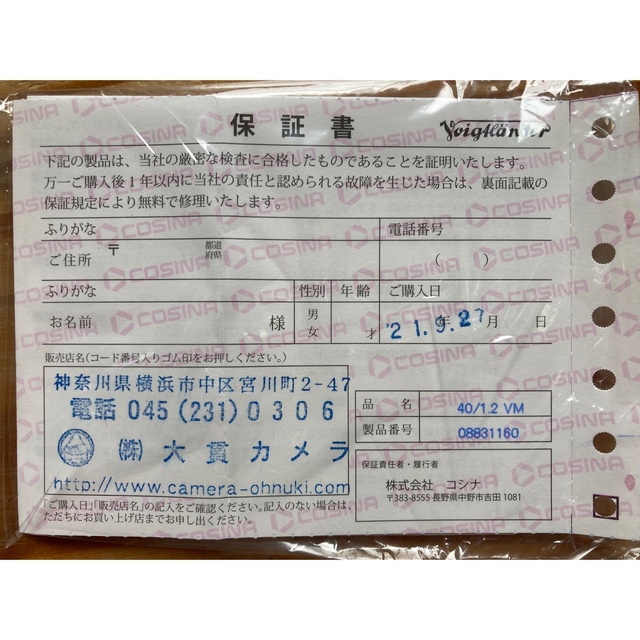 保証書
Voigtländer
下記の製品は、当社の厳密な検査に合格したものであることを証明いたします。
万一ご購入後1年以内に当社の責任と認められる故障を生じた場合は、裏面記載の
保証規定により無料で修理いたします。
ふりがな
電話番号
ご住所 〒 都道府県
( )
ふりがな 性別 年齢 ご購入日
お名前 様 男 女 才 '21.9.27 年 月 日
販売店名(コード番号入りゴム印をお押しください。)
神奈川県横浜市中区宮川町2-47
電話 045(231)0306
㈱ 大貫カメラ
http://www.camera-ohnuki.com
品名 40/1.2 VM
製品番号 08831160
保証責任者・履行者
株式会社 コシナ
〒383-8555 長野県中野市吉田 1081
「ご購入日」「販売店名」の記入をご確認ください。記入のない場合は、
ただちにお買い上げ店までお申し出ください。
COSINA